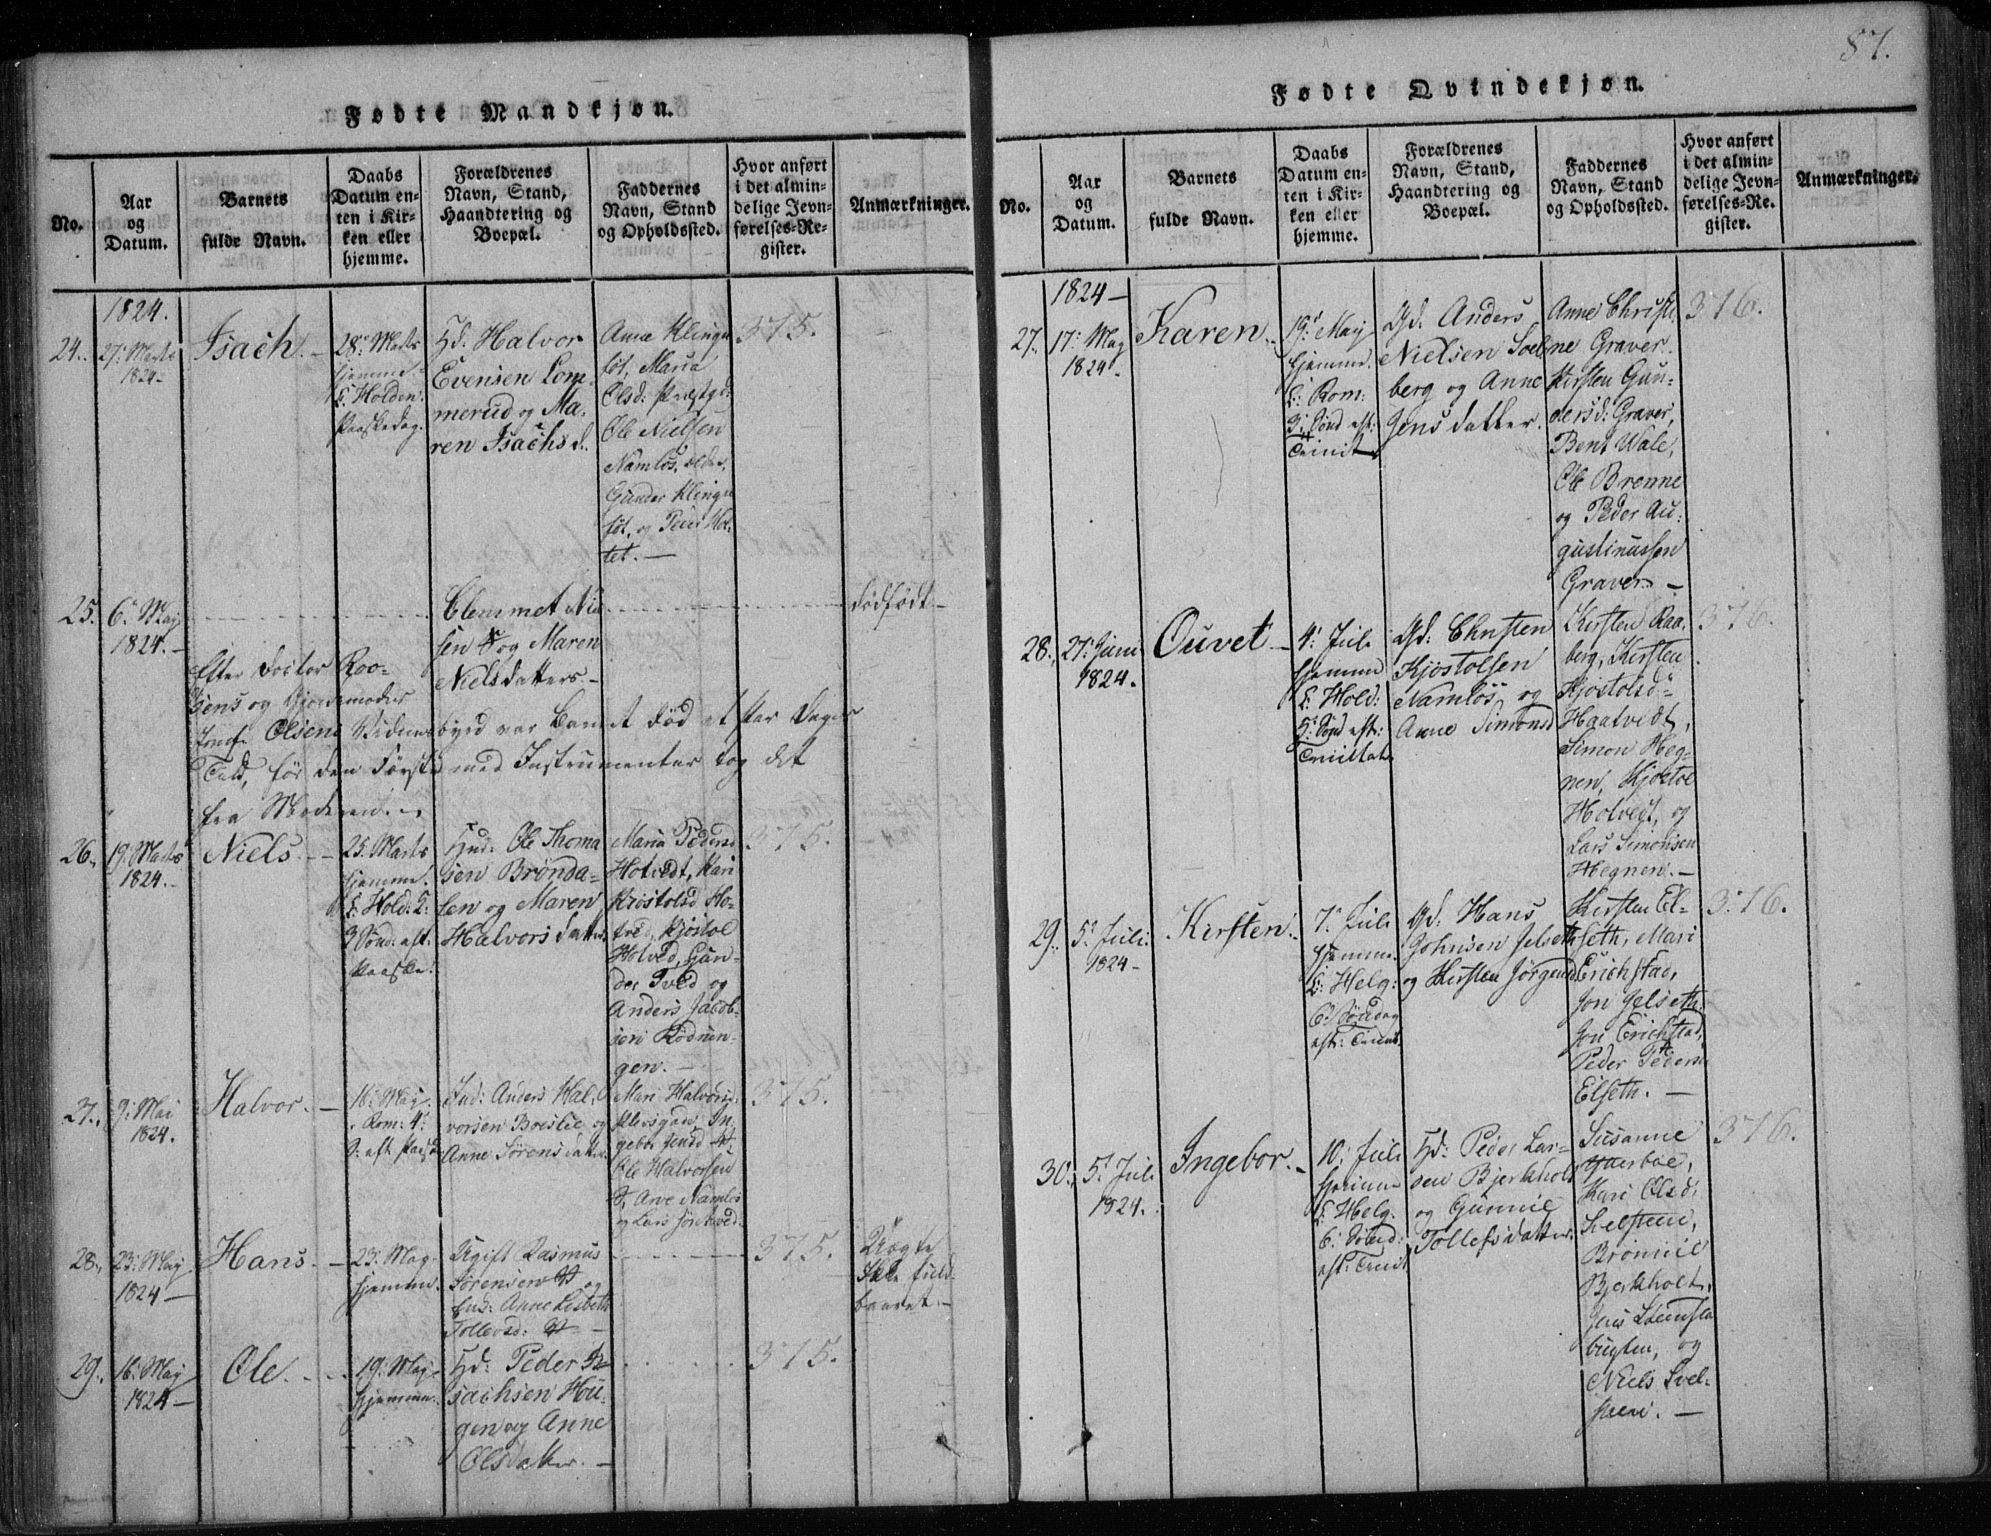 87.
Fødte Mandkjøn.
No.
Aar
og
Datum.
Barnets
fulde Navn.
Daabs
Datum en-
ten i Kir-
ken eller
hjemme.
Forældrenes
Navn, Stand,
Haandtering og
Boepæl.
Faddernes
Navn, Stand
og Opholdssted.
Hvor anført
i det almin-
delige Jevn-
førelses-Re-
gister.
Anmærkninger.
1824.
24.
27. Marts
1824
Isach.
28. Marts
hjemme
Holden
Paaskedag.
Hd. Halvor
Evensen Lom-
merud og Ma-
ren Isachsd.
Anne Klinge
föt, Maria
Olsd: Præstgd:
Ole Nielsen
Namlös, ældre,
Gunder Klinge
föt, og Peder Hol-
tet.
375.
25.
6. May
1824.
Clemmet Niel
sen og Maren
Nielsdatters
dödfödt
Efter Doctor Roo-
sens og Gjordemoder
Olsens Vidnesbyrd var Barnet död et Par Dager
för den Förste med Instrumenter tog det
fra Moderen.
26.
19. Marts
1824.
Niels.
25. Marts
hjemme.
Hold: 2:
Sönd: eft:
Paaske.
Hmd: Ole Thoma
sen Brönda-
len og Maren
Halvorsdatter
Maria Pedersd
Hotvedt, Kari
Kjöstolsd Ho-
tved, Kjöstol
Holved, Gun-
der Tved og
Anders Jacob-
sen Rödnin-
gen.
375.
27.
9. Mai
1824.
Halvor.
16. May
Rom: 4:
S: eft Paaske
Ind: Anders Hal-
vorsen Boeslie og
Anne Sörensdatter
Mari Halvorsd:
In-
gebor
Ole Halvorsen
Arve Namlös
og Lars
375.
28.
23. May
1824
Hans.
23. May
hjemme.
Ugift Rasmus
Sörensen og
Anne Lisbeth
Tollevsd:
375.
Uægte
Ikke fuld
baaret.
29.
16. May
1824
Ole.
19. May
hjemme.
Hd: Peder I-
sachsen Hu-
gen og Anne
Olsdatter.
375.
Fødte Qvindekjøn.
No.
Aar
og
Datum.
Barnets
fulde Navn.
Daabs
Datum en-
ten i Kir-
ken eller
hjemme.
Forældrenes
Navn, Stand,
Haandtering og
Boepæl.
Faddernes
Navn, Stand
og Opholdssted.
Hvor anført
i det almin-
delige Jevn-
førelses-Re-
gister.
Anmærkninger.
1824
27.
17. May
1824.
Karen.
19. May
hjemme.
Rom:
3. Sönd eft:
Trinit
Gd. Anders
Nielsen Soel
berg og Anne
Jensdatter.
Anne Christi
ne Graver
Kirsten Gun-
dersd: Graver,
Bent Wale,
Ole Brenne
og Peder Au-
gustinussen
Graver
376.
28.
27. Juni
1824.
Ouvet
4. Juli
hjemme
Hold:
5. Sönd eft:
Trinitat
Gd: Christen
Kjöstolsen
Namlös og
Anne Simonsd
Kirsten Raa
berg, Kirsten
Kjöstolsd
Haatvedt,
Simon Heg-
nen, Kjöstol
Holvedt, og
Lars Simonsen
Hegnen.
376.
29.
5. Juli
1824
Kirsten.
7. Juli
hjemme
Helg:
6. Söndag
eft: Trinit.
Gd: Hans
Johnsen Jelseth
og Kirsten Jörgensd
Kirsten El-
seth, Mari
Erichstad,
Jon Jelseth
Jon Erichstad,
Peder Peders
Elseth.
376.
30.
5. Juli
1824.
Ingebor.
10. Juli
hjemme
Helg.
6. Sönd:
eft: Trinit
Hd: Peder Lar-
sen Bjerkholt
og Gunnil
Tollefsdatter.
Susanne
Kari Olsd:
Bromnil
Bjerkholt,
Jens
bugten, og
Niels Svel-
376.